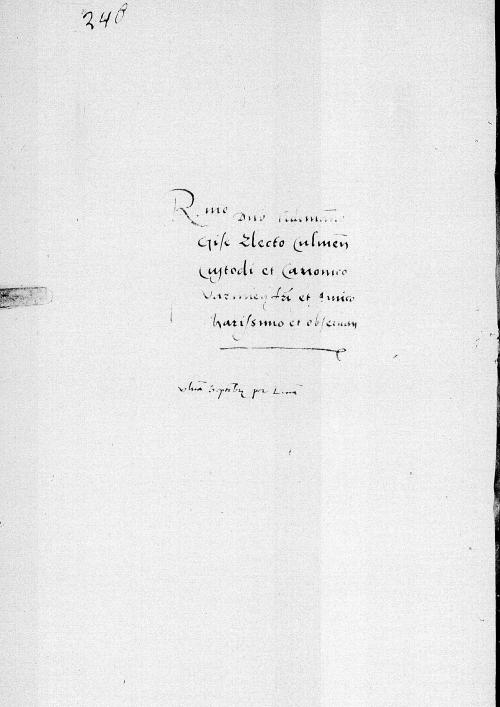 240
R.mo Dno Tidemanno
Gise Electo Culmen̄
Custodi et Canonico
Varmien̄ fri et Amico
Karissimo et obseruan